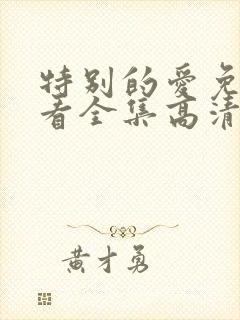 特别的爱免
看全集高清
黄才勇